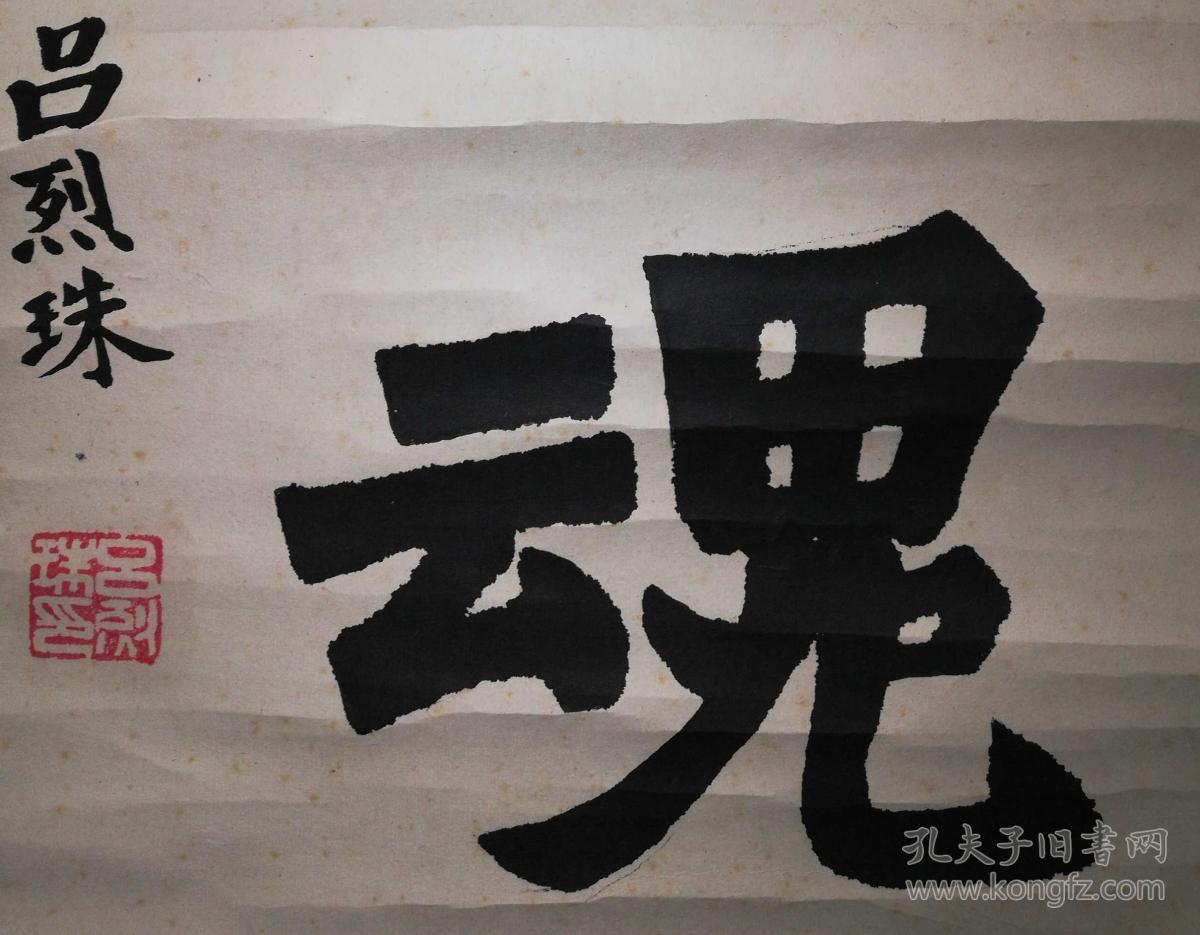 魂
吕烈珠
吕烈珠印
孔夫子旧书网
www.kongfz.com